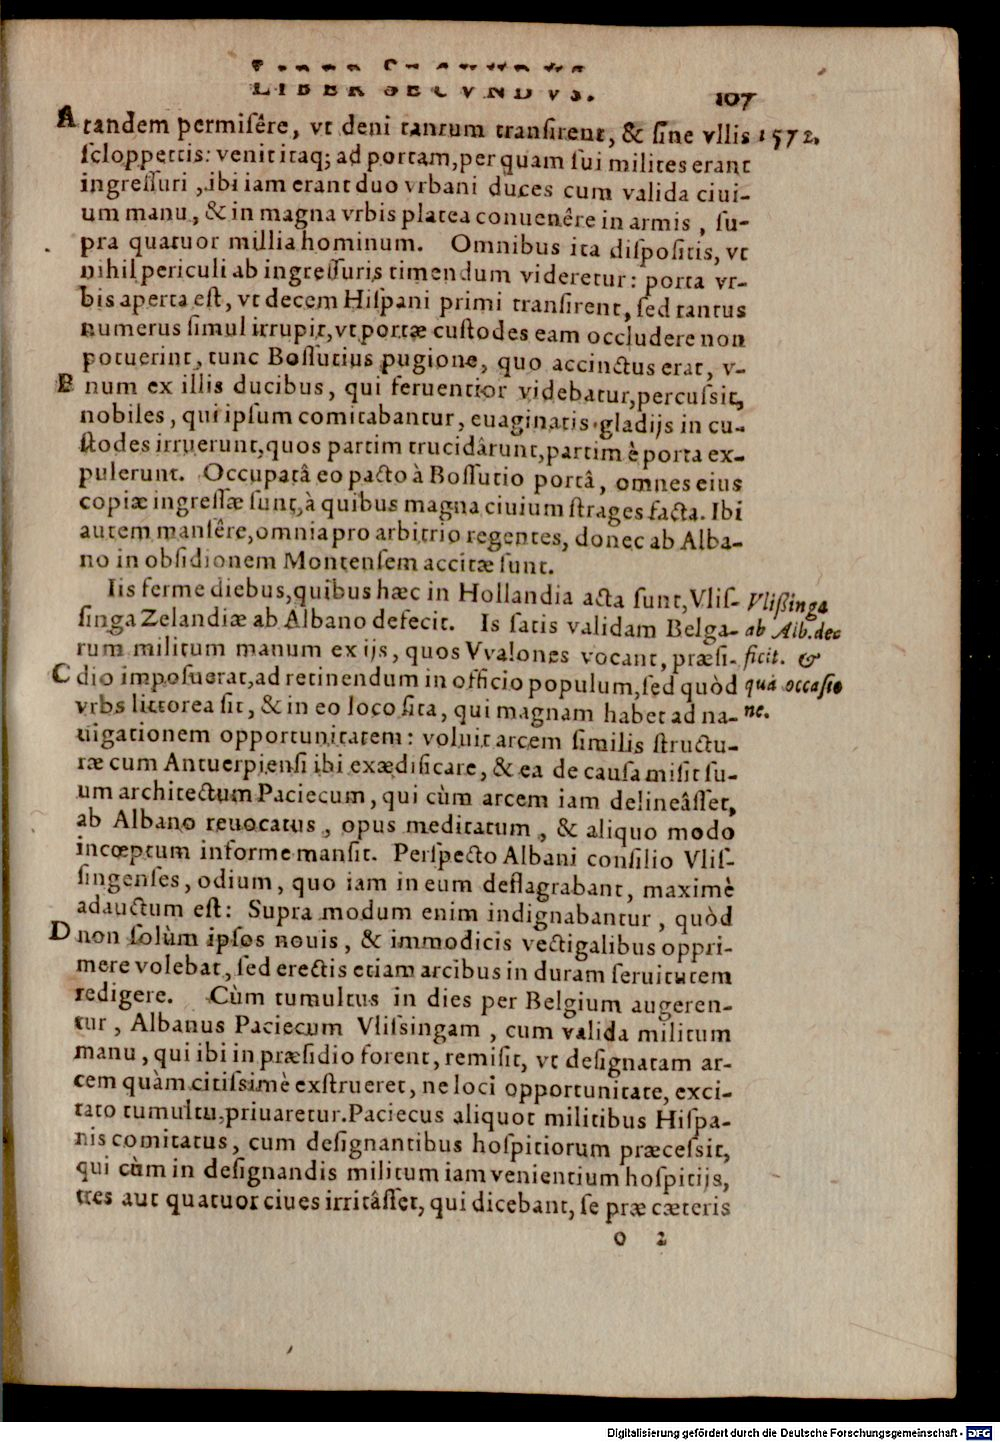 LIBER SECVNDVS. 107
A tandem permisêre, vt deni tantum transirent, & sine vllis 1572.
scloppettis: venit itaq; ad portam, per quam sui milites erant
ingressuri, ibi iam erant duo vrbani duces cum valida ciui-
um manu, & in magna vrbis platea conuenêre in armis, su-
pra quatuor millia hominum. Omnibus ita dispositis, vt
nihil periculi ab ingressuris timendum videretur: porta vr-
bis aperta est, vt decem Hispani primi transirent, sed tantus
numerus simul irrupit, vt portæ custodes eam occludere non
potuerint, tunc Bossutius pugione, quo accinctus erat, v-
B num ex illis ducibus, qui feruentior videbatur, percussit,
nobiles, qui ipsum comitabantur, euaginatis gladijs in cu-
stodes irruerunt, quos partim trucidârunt, partim è porta ex-
pulerunt. Occupatâ eo pacto à Bossutio portâ, omnes eius
copiæ ingressæ sunt, à quibus magna ciuium strages facta. Ibi
autem mansêre, omnia pro arbitrio regentes, donec ab Alba-
no in obsidionem Montensem accitæ sunt.
Iis ferme diebus, quibus hæc in Hollandia acta sunt, Vlis- Vlißinga
singa Zelandiæ ab Albano defecit. Is satis validam Belga- ab Alb. dec
rum militum manum ex ijs, quos Vvalones vocant, præsi- ficit. &
C dio imposuerat, ad retinendum in officio populum, sed quòd qua occasio
vrbs littorea sit, & in eo loco sita, qui magnam habet ad na- ne.
uigationem opportunitatem: voluit arcem similis structu-
ræ cum Antuerpiensi ibi exædificare, & ea de causa misit su-
um architectum Paciecum, qui cùm arcem iam delineâsset,
ab Albano reuocatus, opus meditatum, & aliquo modo
incœptum informe mansit. Perspecto Albani consilio Vlis-
singenses, odium, quo iam in eum deflagrabant, maximè
adauctum est: Supra modum enim indignabantur, quòd
D non solùm ipsos nouis, & immodicis vectigalibus oppri-
mere volebat, sed erectis etiam arcibus in duram seruitutem
redigere. Cùm tumultus in dies per Belgium augeren-
tur, Albanus Paciecum Vlissingam, cum valida militum
manu, qui ibi in præsidio forent, remisit, vt designatam ar-
cem quàm citissimè exstrueret, ne loci opportunitate, exci-
tato tumultu, priuaretur. Paciecus aliquot militibus Hispa-
nis comitatus, cum designantibus hospitiorum præcessit,
qui cùm in designandis militum iam venientium hospitijs,
tres aut quatuor ciues irritâsset, qui dicebant, se præ cæteris
O 2
Digitalisierung gefördert durch die Deutsche Forschungsgemeinschaft - DFG